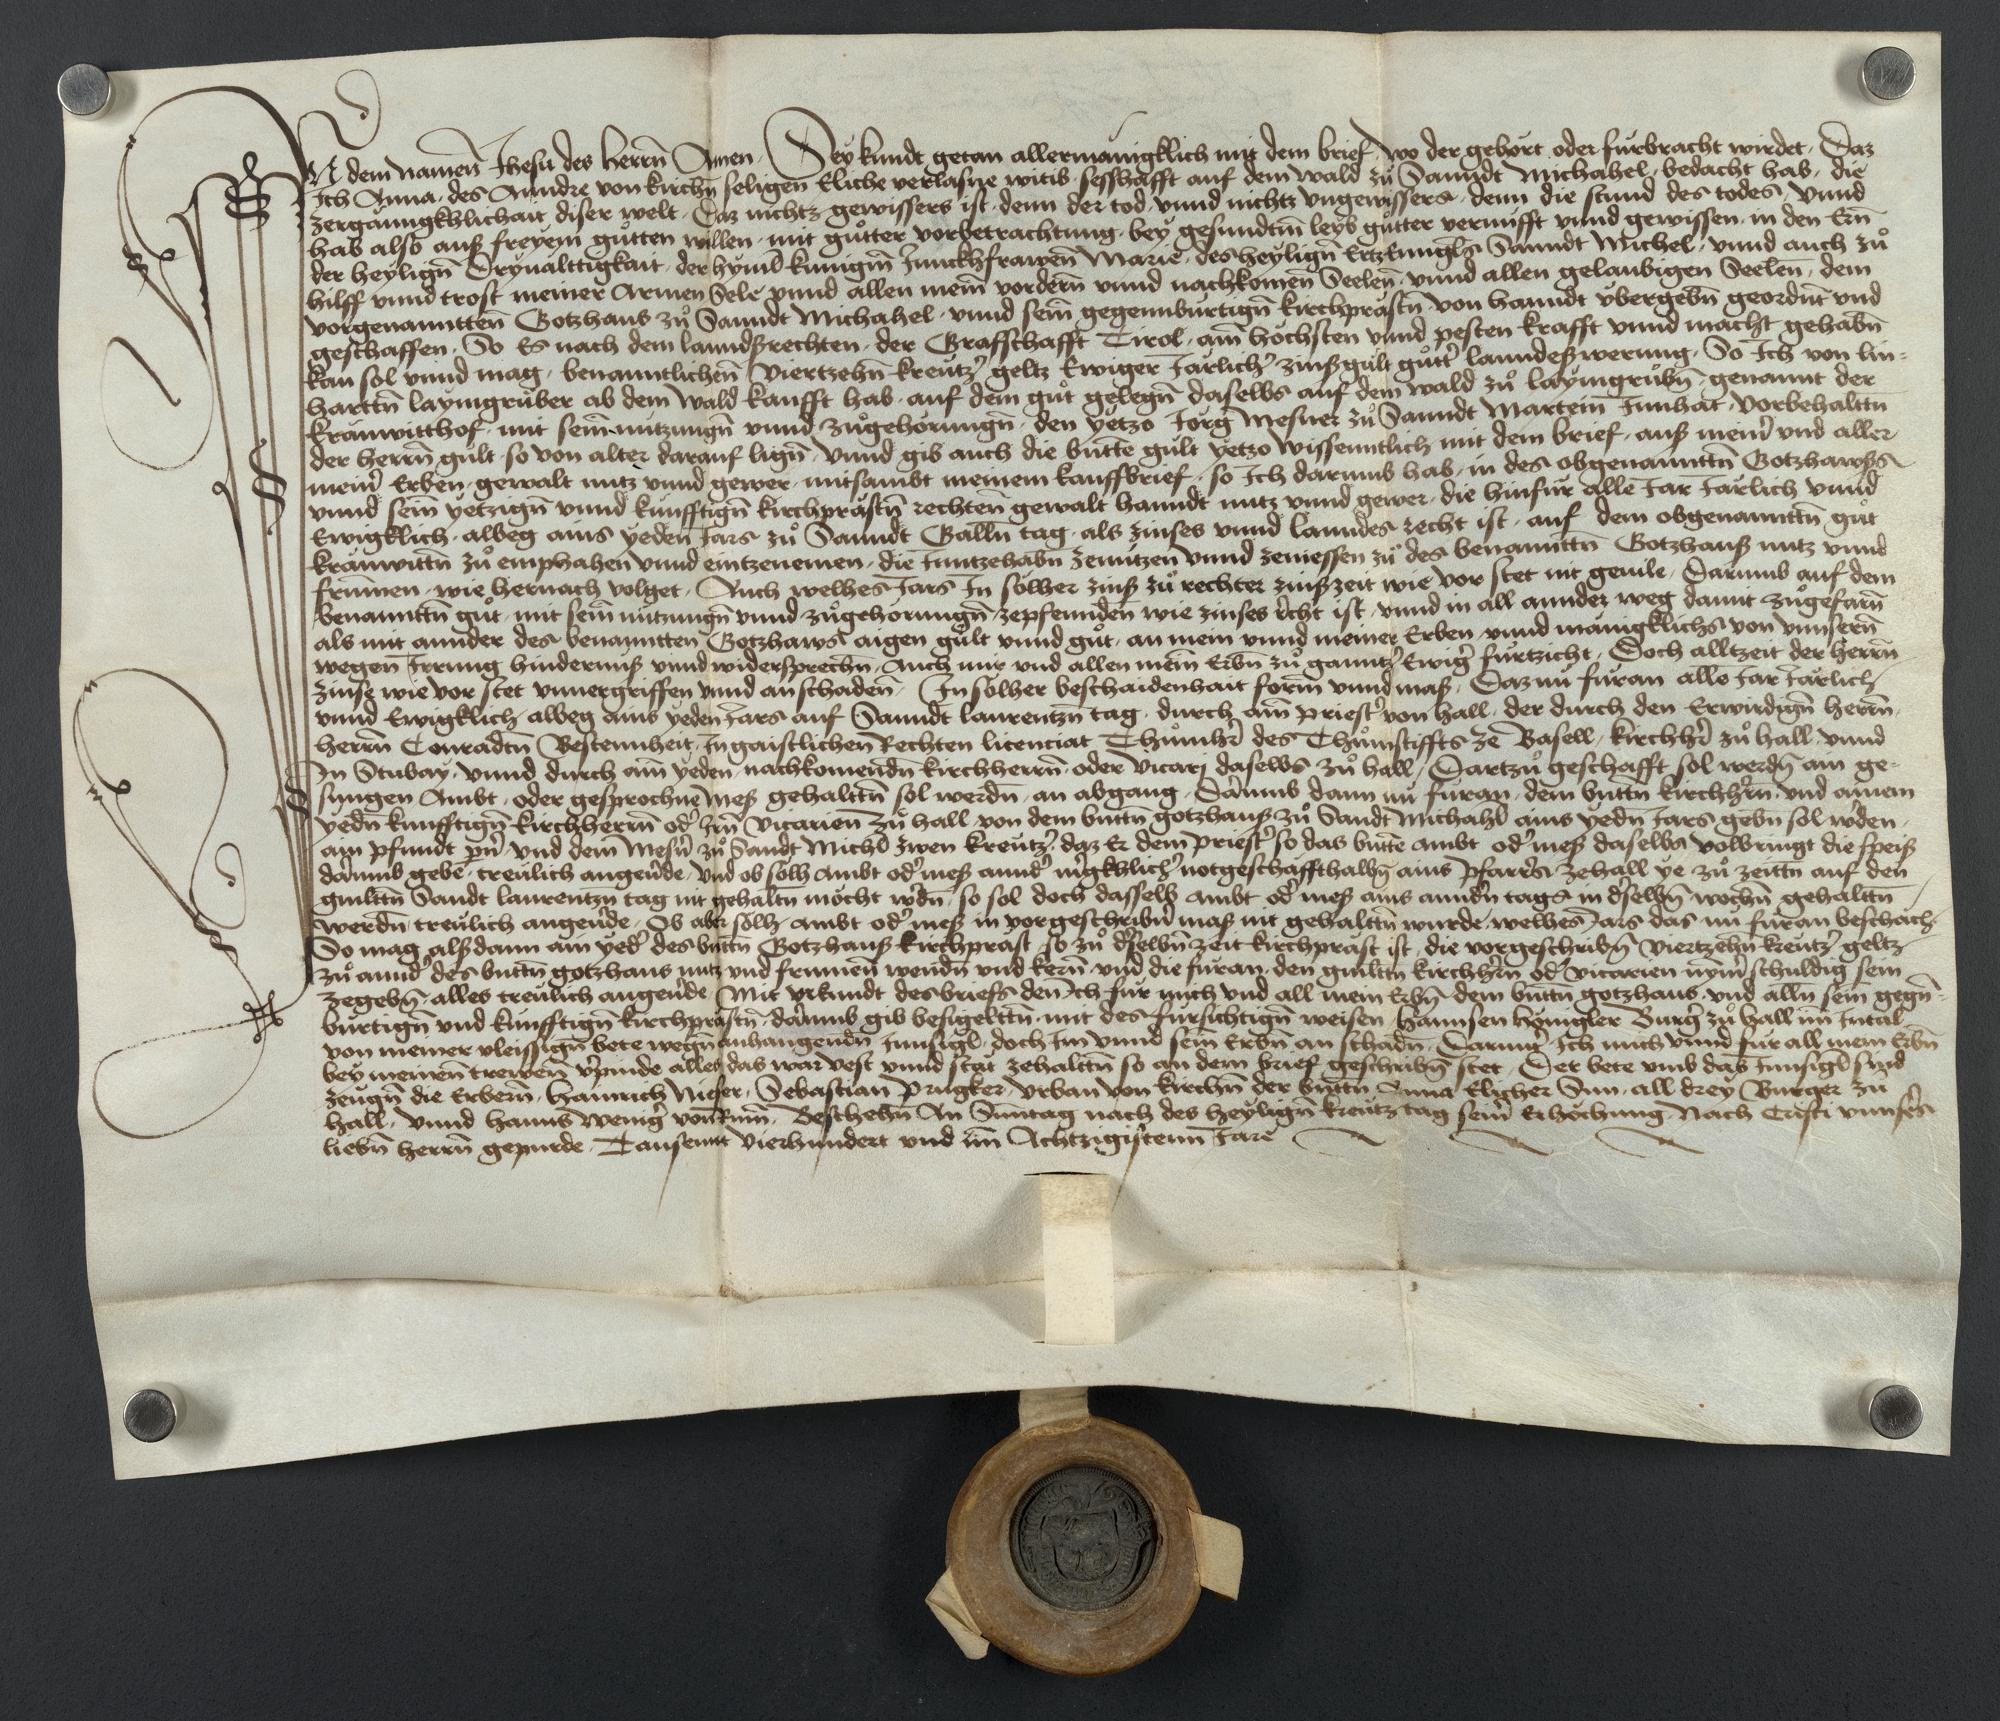 In dem namen Ihesu des herrn Amen. Sey kundt getan allermänigklich mit dem brief, wo der gehört oder fürbracht wirdet. Daz
Ich Anna, des Anndre von kirchn̄ seligen Eliche verlasne witib, sesshafft auf dem wald zů Sanndt Michahel, bedacht hab, die
zergänngkhlichait diser welt. Daz nichtz gewissers ist, denn der tod, vnnd nichtz vngewissers, denn die stund des todes. Vnnd
hab also auß freyem gůtten willen, mit gůtter vorbetrachtung, bey gesundtm̄ leyb gůtter vernufft vnnd gewissen, in den Ern̄
der heylign̄ Dryualttigkait, der hyml kunigin̄ Junckhfrawen̄ Marie, des heylign̄ Ertzenngls Sanndt Michel, vnnd auch zů
hilff vnnd trost meiner Armen Sele vnnd allen mein̄ vordern̄ vnnd nachkomen̄ Seelen̄, vnnd allen gelaubigen Seelen̄, dem
vorgenanntten̄ Gotzhaus zů Sanndt Michahel, vnnd sein̄ gegennburtign̄ kirchpräستn̄ von hanndt vbergebn̄ geordnt vnd
geschaffen. So Es nach dem lanndßrechten, der Grafschafft Tirol, am höchsten vnnd pesten krafft vnnd macht gehabn̄
kan sol vnnd mag, benanntlichen̄ Viertzehn̄ kreutzʾ geltz Ewiger Järlichʾ zinßgült gůttʾ lanndeßwerung. So Ich von lin-
harttn̄ laymgrůber ab dem Wald kaufft hab, auf dem gůt gelegn̄ daselbs auf dem wald zů laymgrůbn̄, genannt der
kranwitthof, mit sein̄ nutzungn̄ vnnd zůgehörungn̄, den yetzo Jörg Mesner zů Sanndt Martein̄ Innhat, Vorbehalttn̄
der herrn̄ gült, so von alter darauf lign̄, Vnnd gib auch die bn̄tte gült yetzo Wissenntlich mit dem brief, auß meinʾ vnd aller
meinʾ Erben, gewalt nutz vnnd gewer, mitsambt meinem kauffbrief, so Ich darumb hab, in des obgenannttn̄ Gotzhawss
vnnd sein̄ yetzign̄ vnnd kunfftign̄ kirchprästn̄ rechten̄ gewalt hanndt nutz vnnd gewer, die hinfür alle Jar Järlich vnnd
Ewigklich, albeg ains yeden Jars zů Sanndt Galln̄ tag, als zinses vnnd lanndes recht ist, auf dem obgenannttn̄ gůt
kranwittn̄ zů emphahen vnnd eintzenemen, die Inntzehabn̄ zenutzen vnnd zeniessen zů des benannttn̄ Gotzhauß nutz vnnd
frum̄en, wie hernach volget. Auch welhes Jars In sölher zinß zů rechter zinßzeit wie vor stet nit geuile, Darumb auf dem
benannttn̄ gůt, mit sein̄ nutzungn̄ vnnd zůgehörungn̄, zepfennden̄ wie zinses rʾcht ist, vnnd in all annder weg damit zůgefarn̄
als mit annder des benanntten Gotzhaws aigen gült vnnd gůt, an mein vnnd meiner Erben, vnnd mänigklichs von vnnsern̄
wegen Irrung hindernuß vnnd widersprechn̄, Auch mir vnd allen mein̄ Erbn̄ zů ganntzʾ Ewigʾ fürtzicht. Doch alltzeit der herrn̄
zinse wie vor stet vnuergriffen vnnd an schaden̄. In sölher beschaidenhait form̄ vnnd maß, Daz nu füran alle Jar Järlich
vnnd Ewigklich, albeg ains yeden Jars auf Sanndt laurentzn̄ tag, durch ain̄ priestʾ von hall, der durch den Erwirdign̄ herrn̄
herrn̄ Conradtn̄ Bestennheit, In gaistlichen Rechten licenciat Thůmhʾr des Thůmstiffts ze Basell, kirchhʾr zů hall, vnnd
In Stubay, vnnd durch ain̄ yeden, nachkomendn̄ kirchherrn̄, oder Vicarj daselbs zů hall, Dartzů geschafft sol werdn̄ ain ge-
sungen Ambt, oder gesprochne Meß gehalttn̄ sol werdn̄, an abgang, Darumb dann nu füran, dem bn̄ttn̄ kirchhʾrn̄, vnd ainem
yedn̄ kunfftign̄ kirchherrn̄ odʾ Irn̄ Vicarien̄ zů hall von dem bn̄ttn̄ gotzhauß zů Sandt Michahl ains yedn̄ Jars gebn̄ sol wʾden,
ain pfundt pnʾ, vnd dem Mesnʾ zů Sandt Michl zwen kreutzʾ, daz Er dem priestʾ so das bn̄tte ambt odʾ meß daselbs volbringt die speiß
darumb gebe, treulich angeuʾde, Vnd ob sölh Ambt odʾ meß anndʾ mʾgkhlichʾ notgeschäffthalbn̄ ains pfarrʾs zehall ye zů zeittn̄ auf den
gniltn̄ Sandt laurentzn̄ tag nit gehaltn̄ möcht wʾdn̄, so sol doch dasselb Ambt odʾ meß ains anndʾn tags in dʾselbn̄ wochn̄ gehalttn̄
werdn̄ treulich angeuʾde, Ob aber sölh Ambt odʾ meß in vorgeschribnʾ maß nit gehalttn̄ wurde, welhes Jars das nu füran beschäch,
So mag alßdann ain yedʾ des bn̄ttn̄ Gotzhauß kirchprast, so zů dʾselbn̄ zeit kirchprast ist, die vorgeschribn̄ Viertzehn̄ kreutzʾ geltz
zů anndʾ des bn̄ttn̄ gotzhaus nutz vnd frumen̄ wendn̄ vnd kern̄ vnd die füran, den gniltn̄ kirchhʾrn̄ odʾ Vicarien nymʾ schuldig sein
zegebn̄, alles treulich angeuʾde, Mit vrkundt des briefs den Ich für mich vnd all mein Erbn̄ dem bn̄ttn̄ gotzhaus, vnd alln̄ sein̄ gegn̄-
bürtign̄ vnd künfftign̄ kirchprästn̄, darumb gib besigelttn̄, mit des fürsichtign̄ weisen, hannsen Königler Burgʾ zů hall im Intal
von meiner vleissign̄ bete wegn̄ anhangendn̄ Innsigl, doch Im vnnd sein̄ Erbn̄ an schadn̄, Darundʾ Ich mich vnnd für all mein Erbn̄
bey meinen̄ trewen̄ vʾpinde alles das war vest vnnd stät zehalttn̄ so an dem brief geschribn̄ stet, Der bete vmb das Innsigl sind
zeugn̄ die Erbern̄, hainrich Nieser, Sebastian prugker, Vrban von kirchn̄ der bn̄ttn̄ Anna Elicher Sun, all drey Burger zů
hall, Vnnd hanns Wenigʾ von Rum̄, Beschehn̄ An Sunntag nach des heylign̄ kreutz tag seinʾ Erhöchung, Nach Cristi vnnsʾs
liebn̄ herrn̄ gepurde, Tausennt Vierhundert vnd im̄ Achtzigistenn Jare